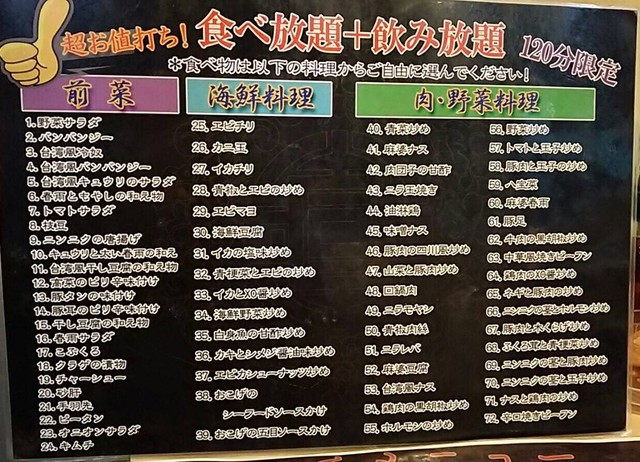 超お値打ち!
食べ放題+飲み放題
120分限定
*食べ物は以下の料理からご自由に選んでください!
前菜
1. 野菜サラダ
2. バンバンジー
3. 台湾風冷奴
4. 台湾風バンバンジー
5. 台湾風キュウリのサラダ
6. 春雨ともやしの和え物
7. トマトサラダ
8. 枝豆
9. ニンニクの唐揚げ
10. キュウリと太い春雨の和え
11. 台湾風干し豆腐の和え物
12. 高菜のピリ辛味付け
13. 豚タンの味付け
14. 豚耳のピリ辛味付け
15. 干し豆腐の和え物
16. 春雨サラダ
17. こぶくろ
18. クラゲの漬物
19. チャーシュー
20. 砂肝
21. 手羽先
22. ピータン
23. オニオンサラダ
24. キムチ
海鮮料理
25. エビチリ
26. カニ玉
27. イカチリ
28. 青椒とエビの炒め
29. エビマヨ
30. 海鮮豆腐
31. イカの塩味炒め
32. 青梗菜とエビの炒め
33. イカとXO醤炒め
34. 海鮮野菜炒め
35. 白身魚の甘酢炒め
36. カキとシメジ醤油味炒め
37. エビカシューナッツ炒め
38. おこげの
シーフードソースかけ
39. おこげの五目ソースかけ
肉・野菜料理
40. 青菜炒め
41. 麻婆ナス
42. 肉団子の甘酢
43. ニラ玉焼き
44. 油淋鶏
45. 味噌ナス
46. 豚肉の四川風炒め
47. 山菜と豚肉炒め
48. 回鍋肉
49. ニラモヤシ
50. 青椒肉絲
51. ニラレバ
52. 麻婆豆腐
53. 台湾風ナス
54. 鶏肉の黒胡椒炒め
55. ホルモンの炒め
56. 野菜炒め
57. トマトと玉子炒め
58. 豚肉と玉子の炒め
59. 八宝菜
60. 麻婆春雨
61. 豚足
62. 牛肉の黒胡椒炒め
63. 中華風焼きビーフン
64. 鶏肉のXO醤炒め
65. ネギと豚肉の炒め
66. ニンニクの芯とホルモン炒め
67. 豚肉と木くらげ炒め
68. ふくろ茸と青梗菜炒め
69. ニンニクの芯と豚肉炒め
70. ニンニクの芯と玉子炒め
71. ナスと鶏肉の炒め
72. 辛口焼ビーフン